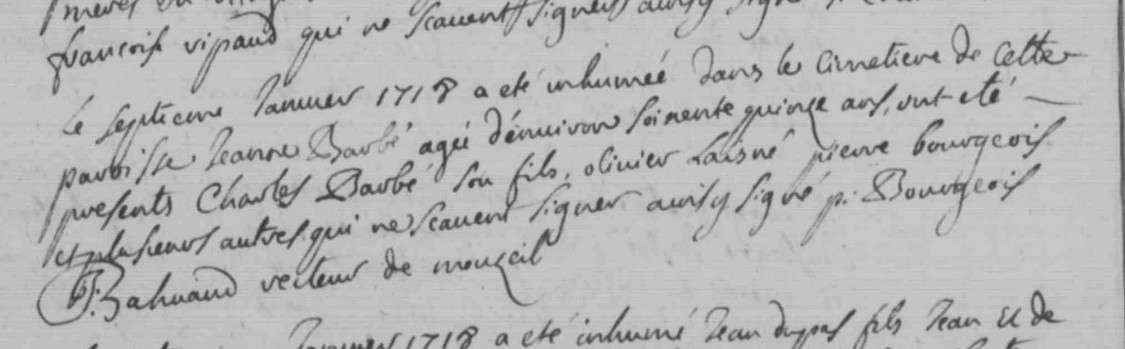 françois vipaud qui ne scauent signer aussy signé
le septieme Januier 1718 a eté inhumeé dans le cimetiere de cette
paroisse Jeanne Barbé ageé d'enuiron soixente quinze ans, ont eté
presents Charles Barbé son fils, oliuier Laisné pierre bourgeois
et plusieurs autres qui ne scauent signer aussy signé p: Bourgeois
recteur de mouzeil
Januier 1718 a eté inhumé Jean dupas fils Jean et de